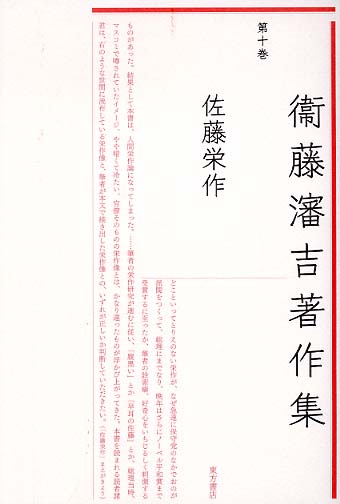 衞藤瀋吉著作集
第十巻
佐藤栄作
どこといってとりえのない栄作が、なぜ急速に保守党のなかでおのが
派閥をつくって、総理にまでなり、晩年はさらにノーベル平和賞まで
受賞するに至ったか、筆者の詮索癖、好奇心をいちじるしく刺激する
ものがあった。結果として本書は、人間栄作論になってしまった。……筆者の栄作研究が進むに従い、「腹黒い」とか「早耳の佐藤」とか、総理当時、
マスコミで噂されていたイメージ、やや暗くて冷たい、官僚そのものの栄作像とは、かなり違ったものが浮かび上がってきた。本書を読まれる読者諸
君は、右のような世間に流布している栄作像と、筆者が本文で描き出した栄作像との、いずれが正しいか判断していただきたい。(「佐藤栄作」まえがきより)
東方書店